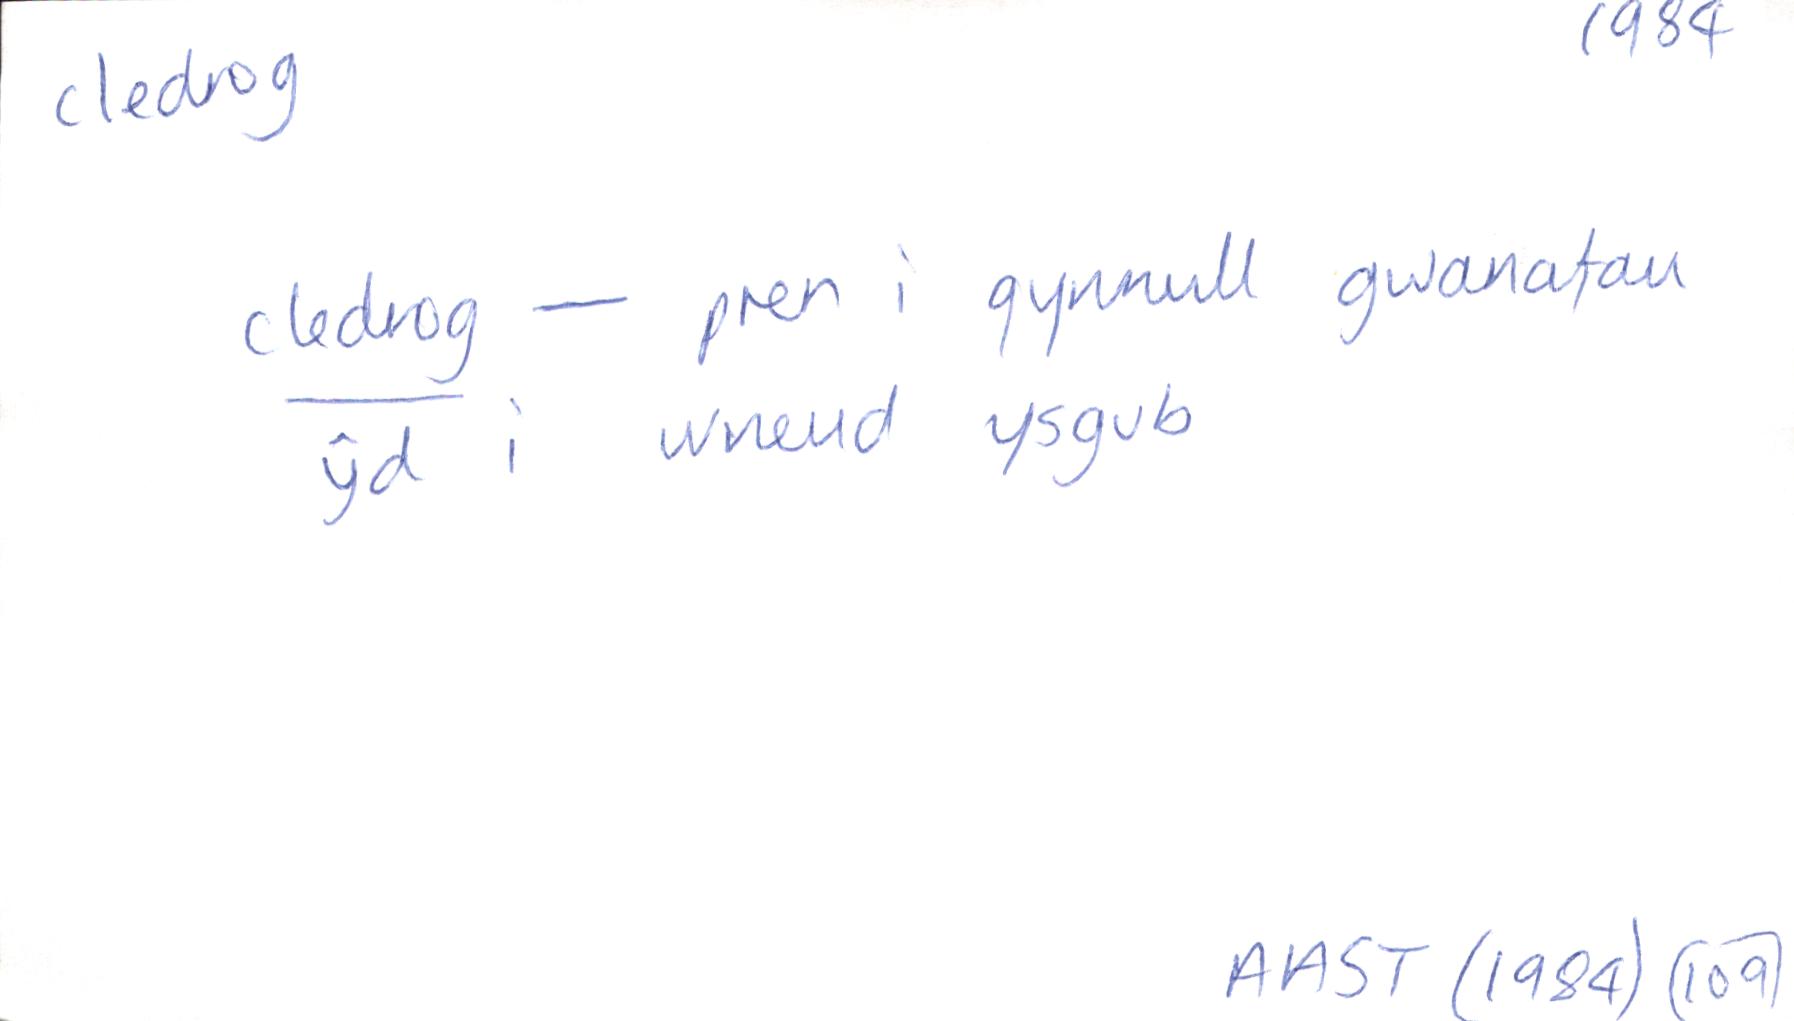 1984
cledrog
cledrog — pren i gynnull gwanafau
ŷd i wneud ysgub
AAST (1984) (109)